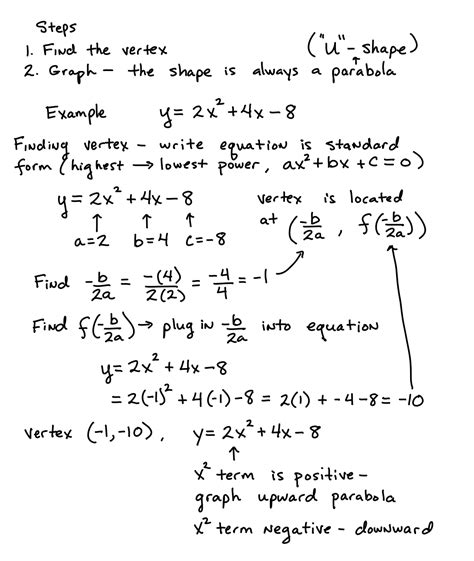 Steps
1. Find the vertex ("u"-shape)
2. Graph - the shape is always a parabola
Example y = 2x² + 4x - 8
Finding vertex - write equation is standard
form (highest → lowest power, ax² + bx + c = 0)
y = 2x² + 4x - 8 vertex is located
↑ ↑ ↑ at (-b/2a, f(-b/2a))
a=2 b=4 c=-8
Find -b/2a = -(4)/2(2) = -4/4 = -1
Find f(-b/2a) → plug in -b/2a into equation
y = 2x² + 4x - 8
= 2(-1)² + 4(-1) - 8 = 2(1) + -4 - 8 = -10
vertex (-1, -10), y = 2x² + 4x - 8
↑
x² term is positive -
graph upward parabola
x² term negative - downward